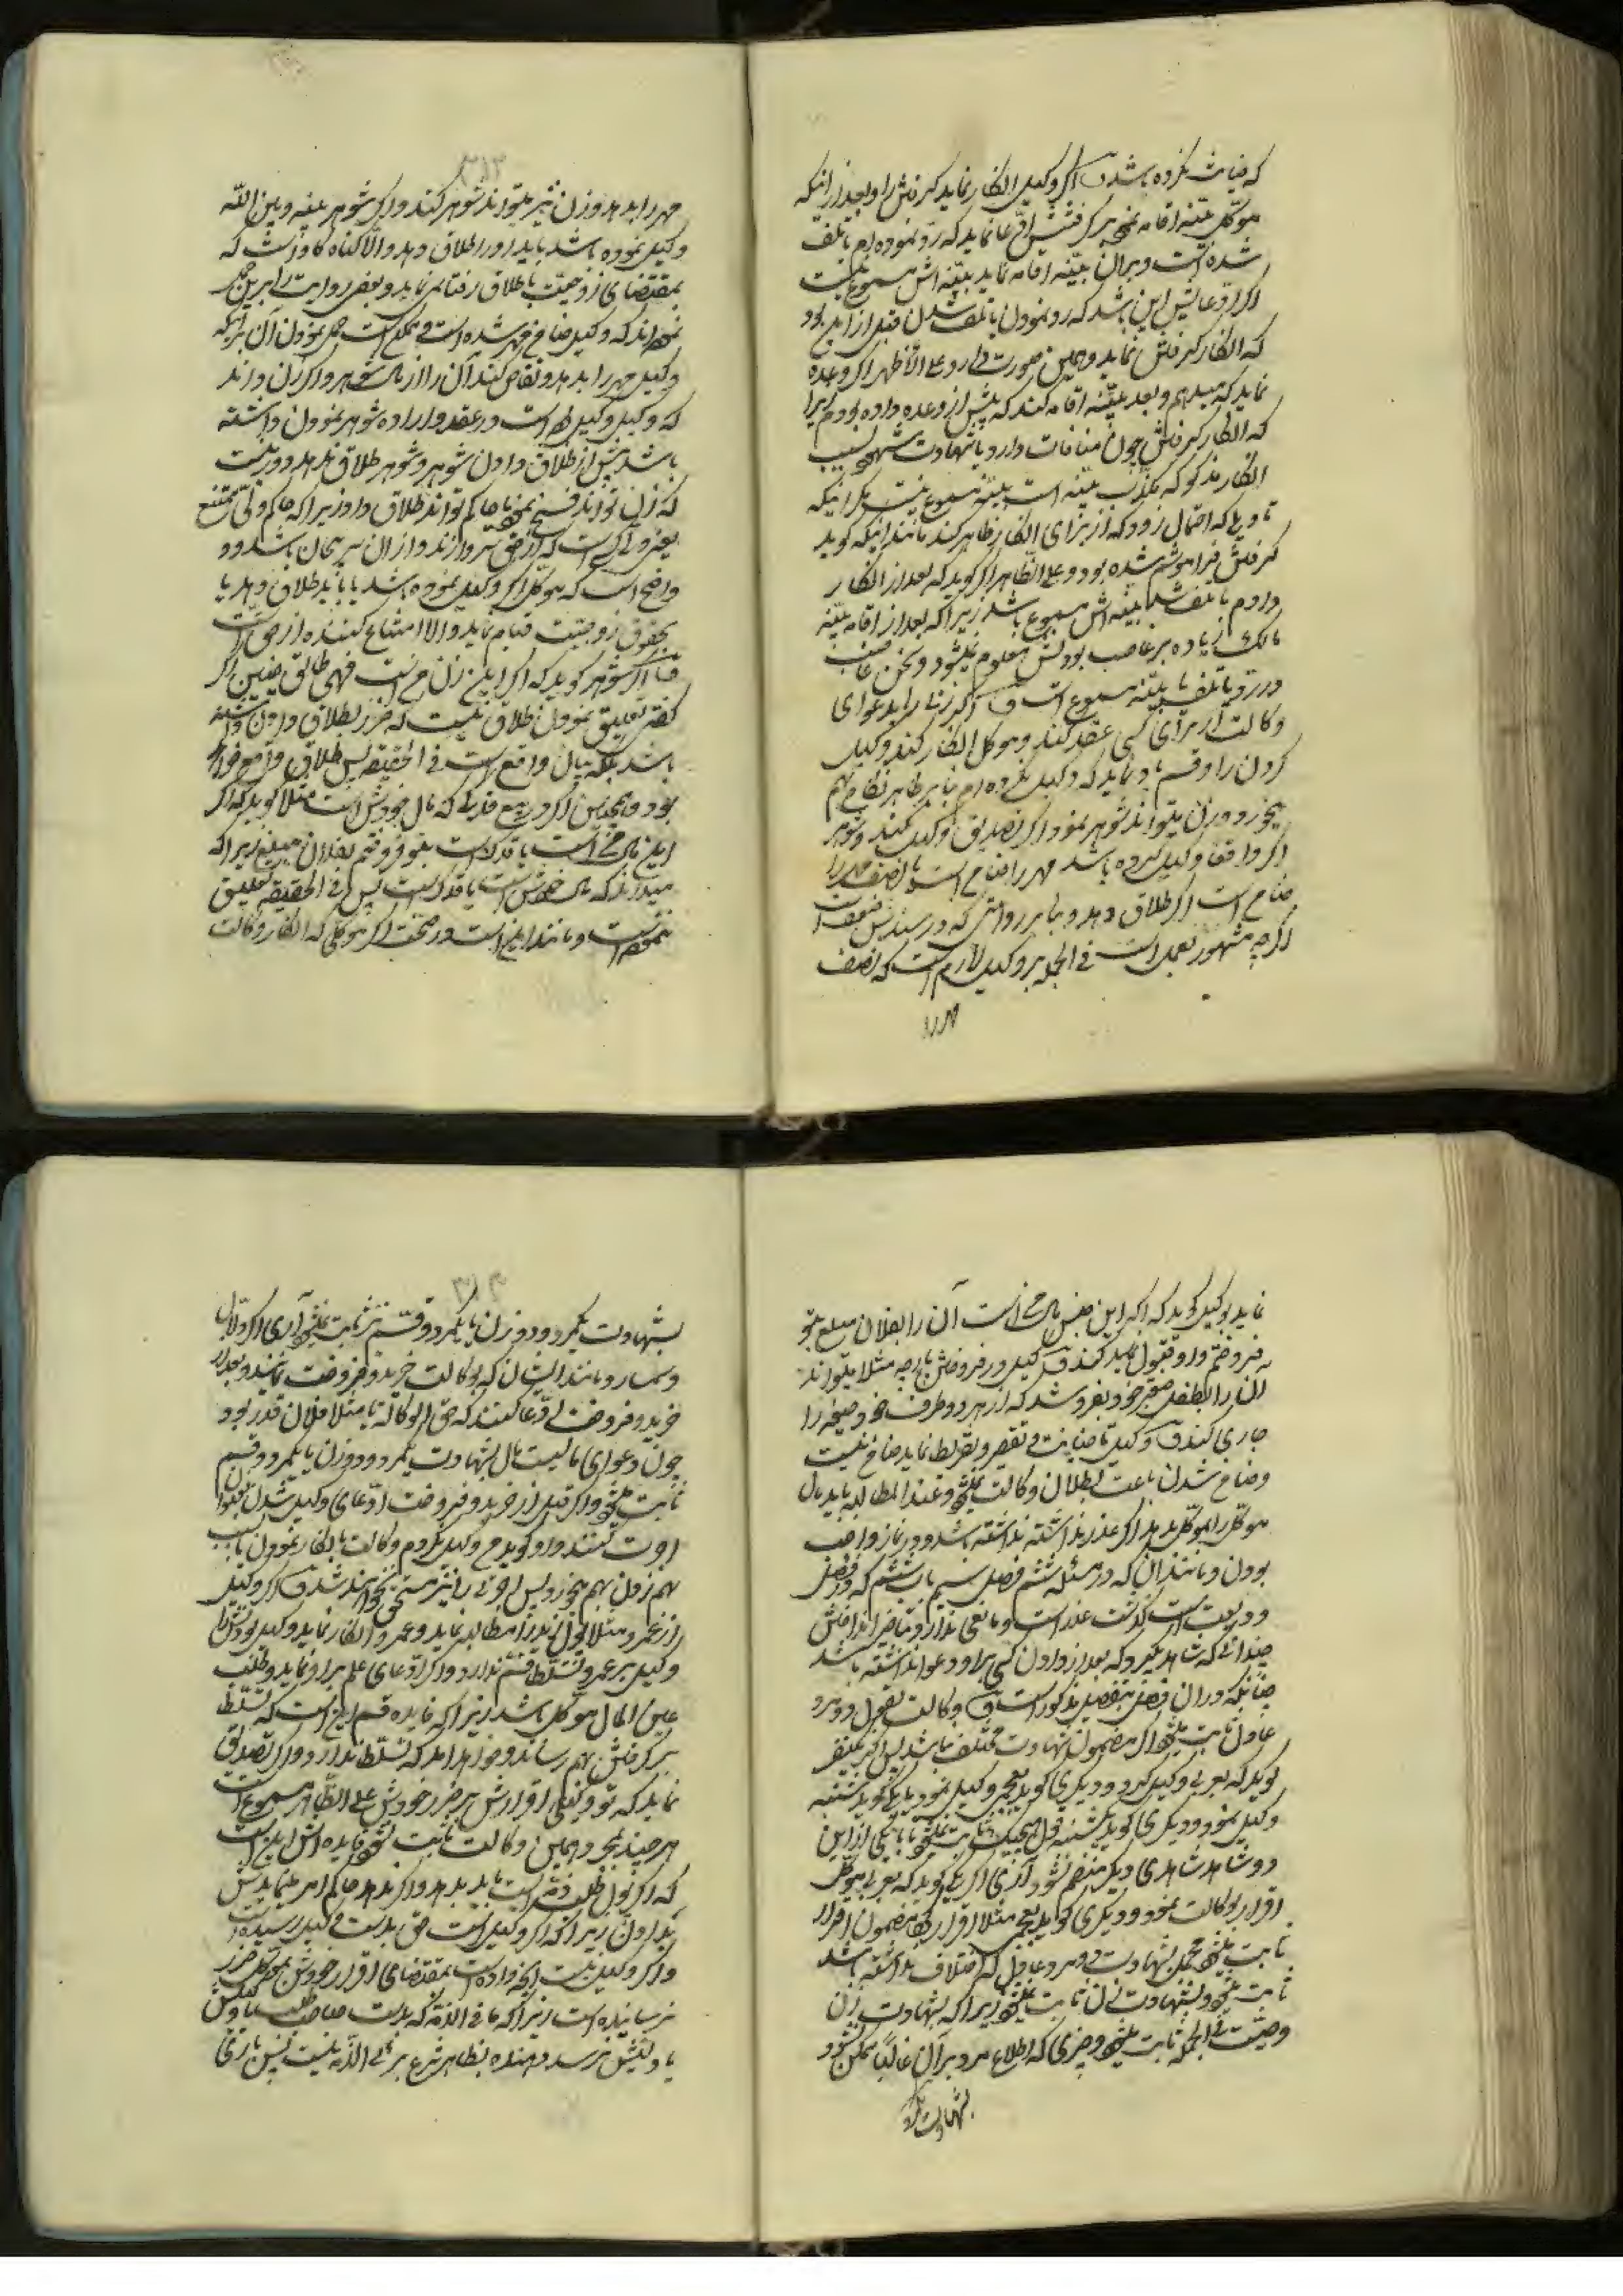 که خیانت نکرده باشد ف اگر وکیل انکار نماید گرفتن را و بعد از اینکه
موکل بینه اقامه نمود بر گرفتنش ادعا نماید که رد نموده ام یا تلف
شده است و بر آن بینه اقامه نماید بینه اش مسموع نیست
اگر ادعایش این باشد که رد نمودن یا تلف شدن قبل از این بود
که انکار گرفتن نماید و همین صورت دارد علی الاظهر اگر وعده
نماید که میدهم و بعد بینه اقامه کند که پیش از وعده داده بودم زیرا
که انکار گرفتن چون منافات دارد با شهادت شهود بسبب
انکار مذکور که مکذب بینه است بینه مسموع نیست مگر اینکه
تاویلی که احتمال رود که از برای انکار ظاهر کند مانند اینکه گوید
گرفتن فراموشم شده بود و علی الظاهر اگر گوید که بعد از انکار
دادم یا تلف شد بینه اش مسموع باشد زیرا که بعد از اقامه بینه
مالک زیاده بر غاصب بودنش معلوم نمیشود و سخن غاصب
در رد و تلف با بینه مسموع است ف اگر زنی را بدعوای
وکالت از برای کسی عقد کند و موکل انکار کند وکیل
کردن را و قسم یاد نماید که وکیل نکرده ام بنابر ظاهر نکاح بهم
میخورد و زن میتواند شوهر نمود اگر تصدیق وکیل نکند و شوهر
اگر واقعا وکیل کرده باشد مهر را ضامن است یا نصف مهر را
ضامن است اگر طلاق دهد و بنابر روایتی که در سندش ضعف است
اگر چه مشهور بعمل است فی الجمله بر وکیل لازم است که نصف
مهر را
۳۱۳
مهر را بدهد و زن نیز میتواند شوهر کند و اگر شوهر بینه و بین الله
وکیل نموده باشد باید او را طلاق دهد و الا گناه کار است که
بمقتضای زوجیت یا طلاق رفتار نماید و بعض روایت را بر این حمل
نموده اند که وکیل ضامن مهر شده است و ممکن است حمل نمودن آن بر اینکه
وکیل مهر را بدهد و تقاص کند آن را از مال شوهر و اگر زن داند
که وکیل وکیل است در عقد و اراده شوهر نمودن داشته
باشد پیش از طلاق دادن شوهر و شوهر طلاق ندهد دور نیست
که زن تواند فسخ نمود یا حاکم تواند طلاق داد زیرا که حاکم ولی ممتنع
یعنی ولی کسی است که از حق سر باز زند و از آن سر پیچان باشد و
واضح است که موکل اگر وکیل نموده باشد یا باید طلاق دهد یا
بحقوق زوجیت قیام نماید و الا امتناع کننده از حق است
ف اگر شوهر گوید که اگر این زن من است فهی طالق یعنی اگر
قصد تعلیق نمودن طلاق نیست که ضرر بطلاق دادن داشته
باشد بلکه بیان واقع است فی الحقیقه پس طلاق واقع خواهد
بود و همچنین اگر در بیع قدری که مال خودش است مثلا گوید که اگر
این مال من است یا قدر است بتو فروختم بفلان مبلغ زیرا که
میداند که مال خودش است یا قدر است پس فی الحقیقه تعلیق
ننموده است و مانند این است در صحت اگر موکلی که انکار وکالت
نماید بوکیل گوید که اگر این جنس مال من است آن را بفلان مبلغ بتو
فروختم و او قبول نماید ف وکیل در فروختن پارچه مثلا میتواند
آن را بطفل صغیر خود بفروشد که از هر دو طرف خود صیغه را
جاری کند ف وکیل تا خیانت و تقصیر و تفریط ننماید ضامن نیست
و ضامن شدن باعث بطلان وکالت نمیشود و عند المطالبه باید مال
موکل را بموکل بدهد اگر عذر نداشته باشد و در نماز واجب
بودن و مانند آن که در مسئله ششم فصل سیم باب ششم که در فصل
ودیعت است گذشت عذر است و مانعی ندارد و تاخیر انداختن
چندانی که شاهد گیرد که بعد از دادن کسی بر او دعوا نداشته باشد
چنانکه در آن فصل بتفصیل مذکور است ف وکالت بقول دو مرد
عادل ثابت میشود اگر مضمون شهادت مختلف نباشد پس اگر یک نفر
گوید که بعربی وکیل کرد و دیگری گوید بعجمی وکیل نمود یا یکی گوید شنبه
وکیل نمود و دیگری گوید یکشنبه قول هیچیک ثابت نمیشود تا با یکی از این
دو شاهد شاهدی دیگر منضم نشود آری اگر یکی گوید که بعربی موکل
اقرار بوکالت نمود و دیگری گوید بعجمی مثلا اقرار کرد مضمون اقرار
ثابت میشود چون بشهادت دو مرد عادل که اختلاف نداشته باشد
ثابت میشود و بشهادت زنان ثابت نمیشود زیرا که بشهادت زن
وصیت فی الجمله ثابت میشود و چیزی که اطلاع مرد بر آن غالبا ممکن نشود
بشهادت یکمرد
۳۱۴
بشهادت یکمرد و دو زن یا یکمرد و قسم نیز ثابت نمیشود آری اگر دلال
و سمسار و مانند ایشان که بوکالت خرید و فروخت نمایند و بعد از
خرید و فروخت ادعا کنند که حق الوکاله ما مثلا فلان قدر بود
چون دعوای مالیست مال بشهادت یکمرد و دو زن یا یکمرد و قسم
ثابت میشود و اگر قبل از خرید و فروخت ادعای وکیل شدن بعنوان
اجرت کنند و او گوید من وکیل نکردم وکالت بانکار نمودن بسبب
بهم زدن بهم میخورد پس اجرتی را نیز مستحق نخواهند شد ف اگر وکیل
از عمرو مثلا پول زید را مطالبه نماید و عمرو انکار نماید وکیل بودنش را
وکیل بر عمرو تسلط قسم ندارد و اگر ادعای علم بر او نماید و طلب
عین المال موکل باشد زیرا که فایده قسم این است که تسلط
بر گرفتن بهم رساند و خواهد آمد که تسلط ندارد و اگر تصدیق
نماید که تو وکیلی اقرارش بر ضرر خودش علی الظاهر مسموع است
هر چند بمجرد همین وکالت ثابت نشود فایده اش این است
که اگر پول طلب ذمه است باید بدهد و اگر ندهد حاکم امر مینمایدش
بدادن زیرا که اگر وکیل است حق بدست وکیل رسیده است
و اگر وکیل نیست آنچه داده است بمقتضای اقرار خودش بموکل ضرر
نرسانیده است زیرا که ما فی الذمه که بدست صاحب طلب یا وکیلش
یا ولیش نرسد دهنده بظاهر شرع بری الذمه نیست پس بازی